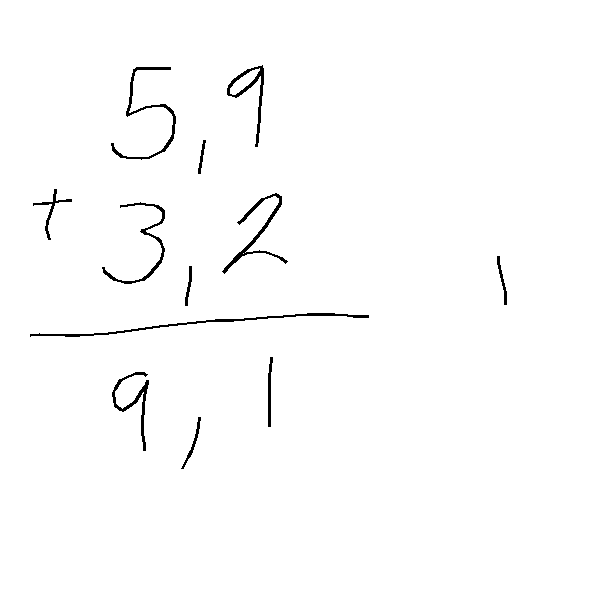 5,9
+ 3,2
9,1